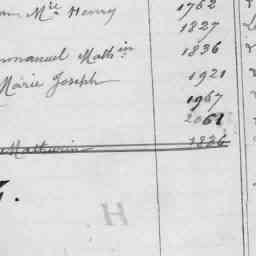 Mie Henry 1762
1827
Emmanuel Mathin 1836
Marie Joseph 1921
1967
2061
Mathurin 1836
H